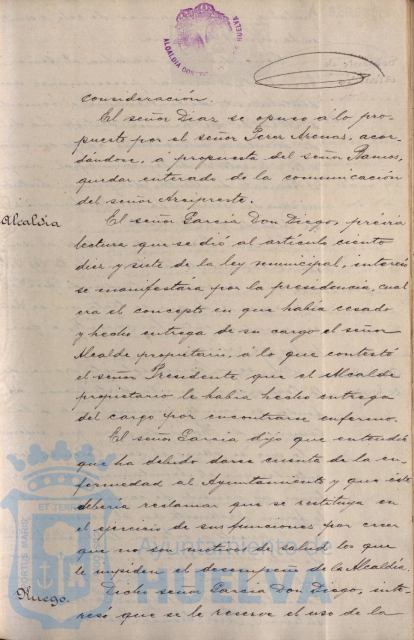 ALCALDIA CONST
HUELVA
consideración.
El señor Diaz se opuso á lo pro-
puesto por el señor Perez Arenas, acor-
dándose, á propuesta del señor Ramos,
quedar enterado de la comunicación
del señor Arcipreste.
Alcaldia
El señor Garcia Don Diego, prévia
lectura que se dió al articulo ciento
diez y siete de la ley municipal, interesó
se manifestara por la presidencia, cual
era el concepto en que habia cesado
y hecho entrega de su cargo el señor
Alcalde propietario, á lo que contestó
el señor Presidente que el Alcalde
propietario le habia hecho entrega
del cargo por encontrarse enfermo.
El señor Garcia dijo que entendia
que ha debido darse cuenta de la en-
fermedad al Ayuntamiento y que éste
deberia reclamar que se restituya en
el ejercicio de sus funciones por creer
que no son motivos de salud los que
le impiden el desempeño de la Alcaldia.
Ruego.
Dicho señor Garcia Don Diego, inte-
resó que se le reserve el uso de la
PORTUS MARIS
ET TERRÆ
Ayuntamiento de
HUELVA